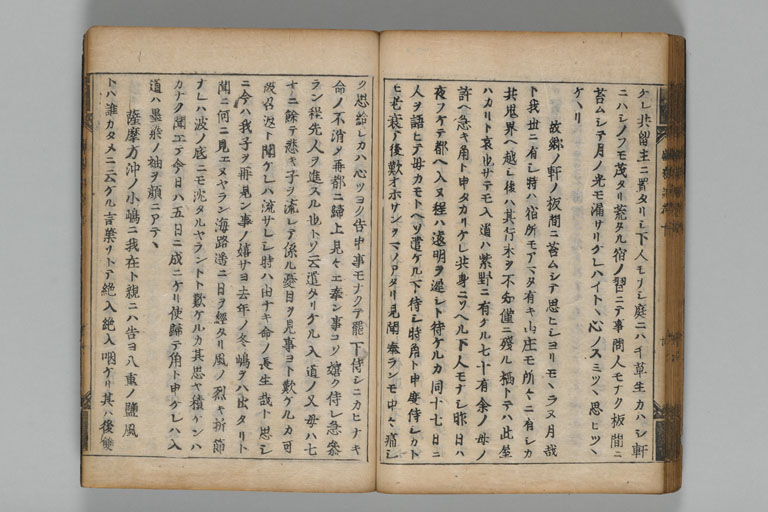 ケレ共留主ニ置タリシ下人モナシ庭ニハ千草生カハシ軒
ニハシノフモ茂タリ荒タル宿ノ習ニテ事問人モナク板間ニ
苔ムシテ月ノ光モ漏サリケレハイトヽ心ノスミツヽ思ヒツヽ
ケヽリ
故郷ノ軒ノ板間ニ苔ムシテ思ヒシヨリモヽラヌ月哉
ト我世ニ有シ時ハ宿所モアマタ有キ山庄モ所々ニ有シカ
共鬼界ヘ越シ後ハ其行末ヲ不知僅ニ残ル栖トテハ此堂
ハカリト哀也サテモ入道ハ紫野ニ有ケル七十有余ノ母ノ
許ヘ急キ角ト申タカリケレ共身ニソヘル下人モナシ昨日ハ
夜フケテ都ヘ入ヌ程ハ遠明ヲ遅シト待ケルカ同十七日ニ
人ヲ語ヒテ母カモトヘソ遣ケル下侍シ時角ト申度侍シカト
モ老衰テ後歎オホサンヲマノアタリ見聞奉ランモ中々痛シ
ク思給シカハ心ツヨク告申事モナクテ罷下侍シニカヒナキ
命ノ不消メ再都ニ帰上見ヘモ奉ン事コソ嬉ク侍レ急参
ラン程先人ヲ進スル也トソ云遣タリケル入道ノ父母ハ七
十ニ餘テ悲キ子ヲ流レテ係ル憂目ヲ見事ヨト歎ケルカ可
被召返ト聞ケレハ流サレシ時ハ由ナキ命ノ長生哉ト思シ
ニ今ハ我子ヲ再見ン事ノ嬉サヨ去年ノ冬嶋ヲハ出タリト
聞ニ何ニ見エヌヤラン海路遥ニ日ヲ経タリ風ノ烈キ折節
ナレハ波ノ底ニモ沈タルヤラントト歎ケルカ其思ヤ積ケンハ
カナク聞エテ今日ハ五日ニ成ニケリ使帰テ角ト申ケレハ入
道ハ墨染ノ袖ヲ顔ニアテヽ
薩摩方沖ノ小嶋ニ我在ト親ニハ告ヨ八重ノ鹽風
トハ誰カタメニ云ケル言葉ソトテ絶入絶入咽ケリ其ハ後雙